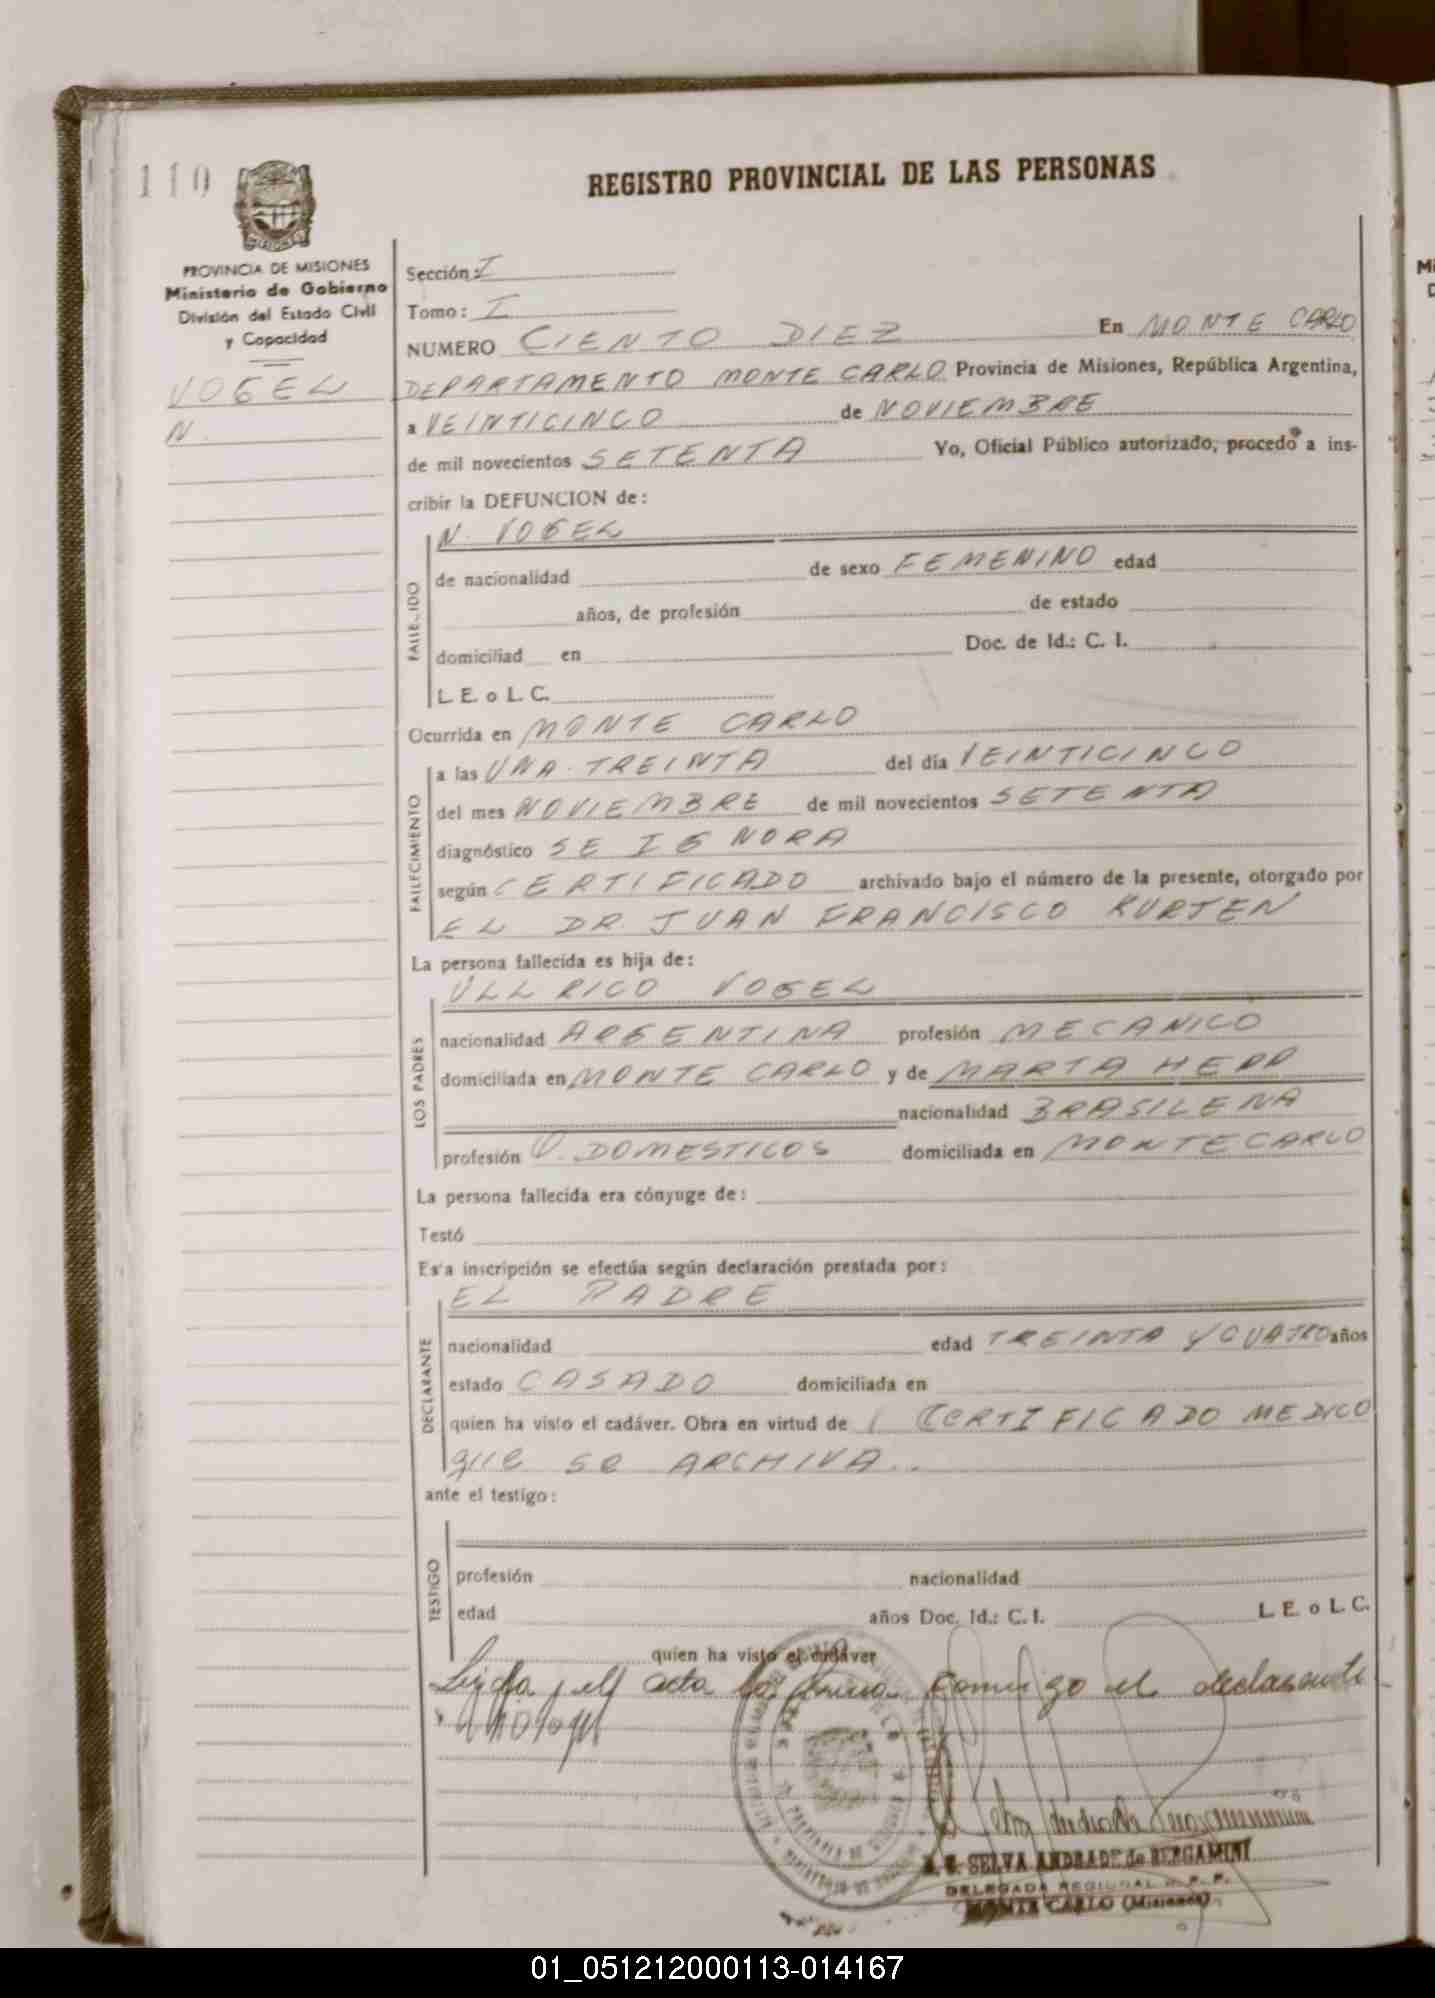 110
REGISTRO PROVINCIAL DE LAS PERSONAS
MISIONES
PROVINCIA DE MISIONES
Ministerio de Gobierno
División del Estado Civil
y Capacidad
VOGEL
N.
Sección: I
Tomo: I
NUMERO CIENTO DIEZ En MONTE CARLO
DEPARTAMENTO MONTE CARLO Provincia de Misiones, República Argentina,
a VEINTICINCO de NOVIEMBRE
de mil novecientos SETENTA Yo, Oficial Público autorizado, procedo a ins-
cribir la DEFUNCION de:
N. VOGEL
FALLECIDO
de nacionalidad de sexo FEMENINO edad
años, de profesión de estado
domiciliad en Doc. de Id.: C. I.
L. E. o L. C.
Ocurrida en MONTE CARLO
FALLECIMIENTO
a las UNA TREINTA del día VEINTICINCO
del mes NOVIEMBRE de mil novecientos SETENTA
diagnóstico SE IGNORA
según CERTIFICADO archivado bajo el número de la presente, otorgado por
EL DR. JUAN FRANCISCO KURTEN
La persona fallecida es hija de:
ULLRICO VOGEL
LOS PADRES
nacionalidad ARGENTINA profesión MECANICO
domiciliada en MONTE CARLO y de MARTA HERR
nacionalidad BRASILENA
profesión Q. DOMESTICOS domiciliada en MONTECARLO
La persona fallecida era cónyuge de:
Testó
Esta inscripción se efectúa según declaración prestada por:
EL PADRE
DECLARANTE
nacionalidad edad TREINTA Y CUATRO años
estado CASADO domiciliada en
quien ha visto el cadáver. Obra en virtud de 1 CERTIFICADO MEDICO
que se ARCHIVA..
ante el testigo:
TESTIGO
profesión nacionalidad
edad años Doc. Id.: C. I. L. E. o L. C.
quien ha visto el cadáver
Leída el acta la firma conmigo el declarante
SELVA ANDRADE de BERGAMINI
DELEGADA REGIONAL R. P. P.
MONTE CARLO (Misiones)
01_051212000113-014167